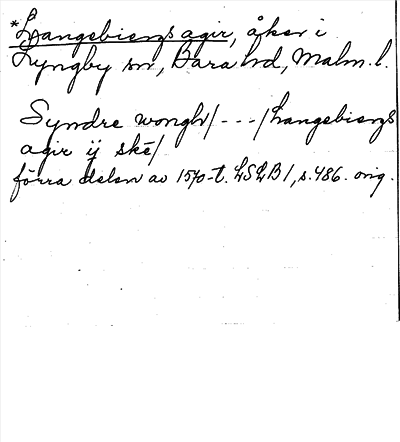 *Langebiergs agir, åker i
Lyngby sn, Bara hd, Malm. l.
Syndre wongh/ - - - / Langebiergs
agir ij skē/
förra delen av 1570-t. LSLB 1, s. 486. orig.